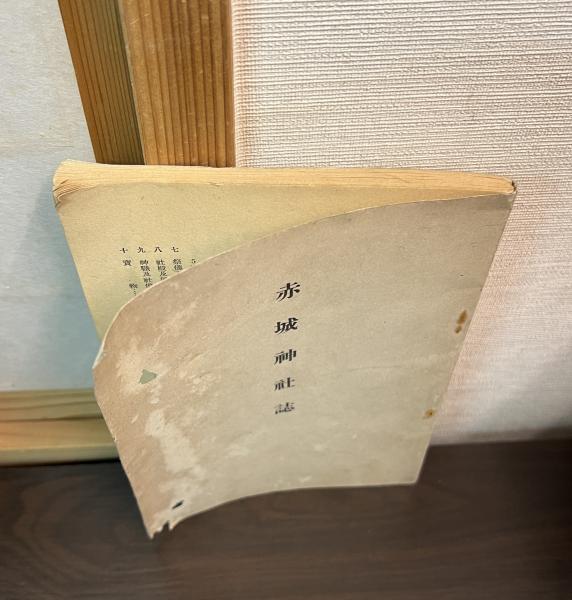 赤城神社誌
七 祭儀
八 社殿及
九 神職及社
十 寶物